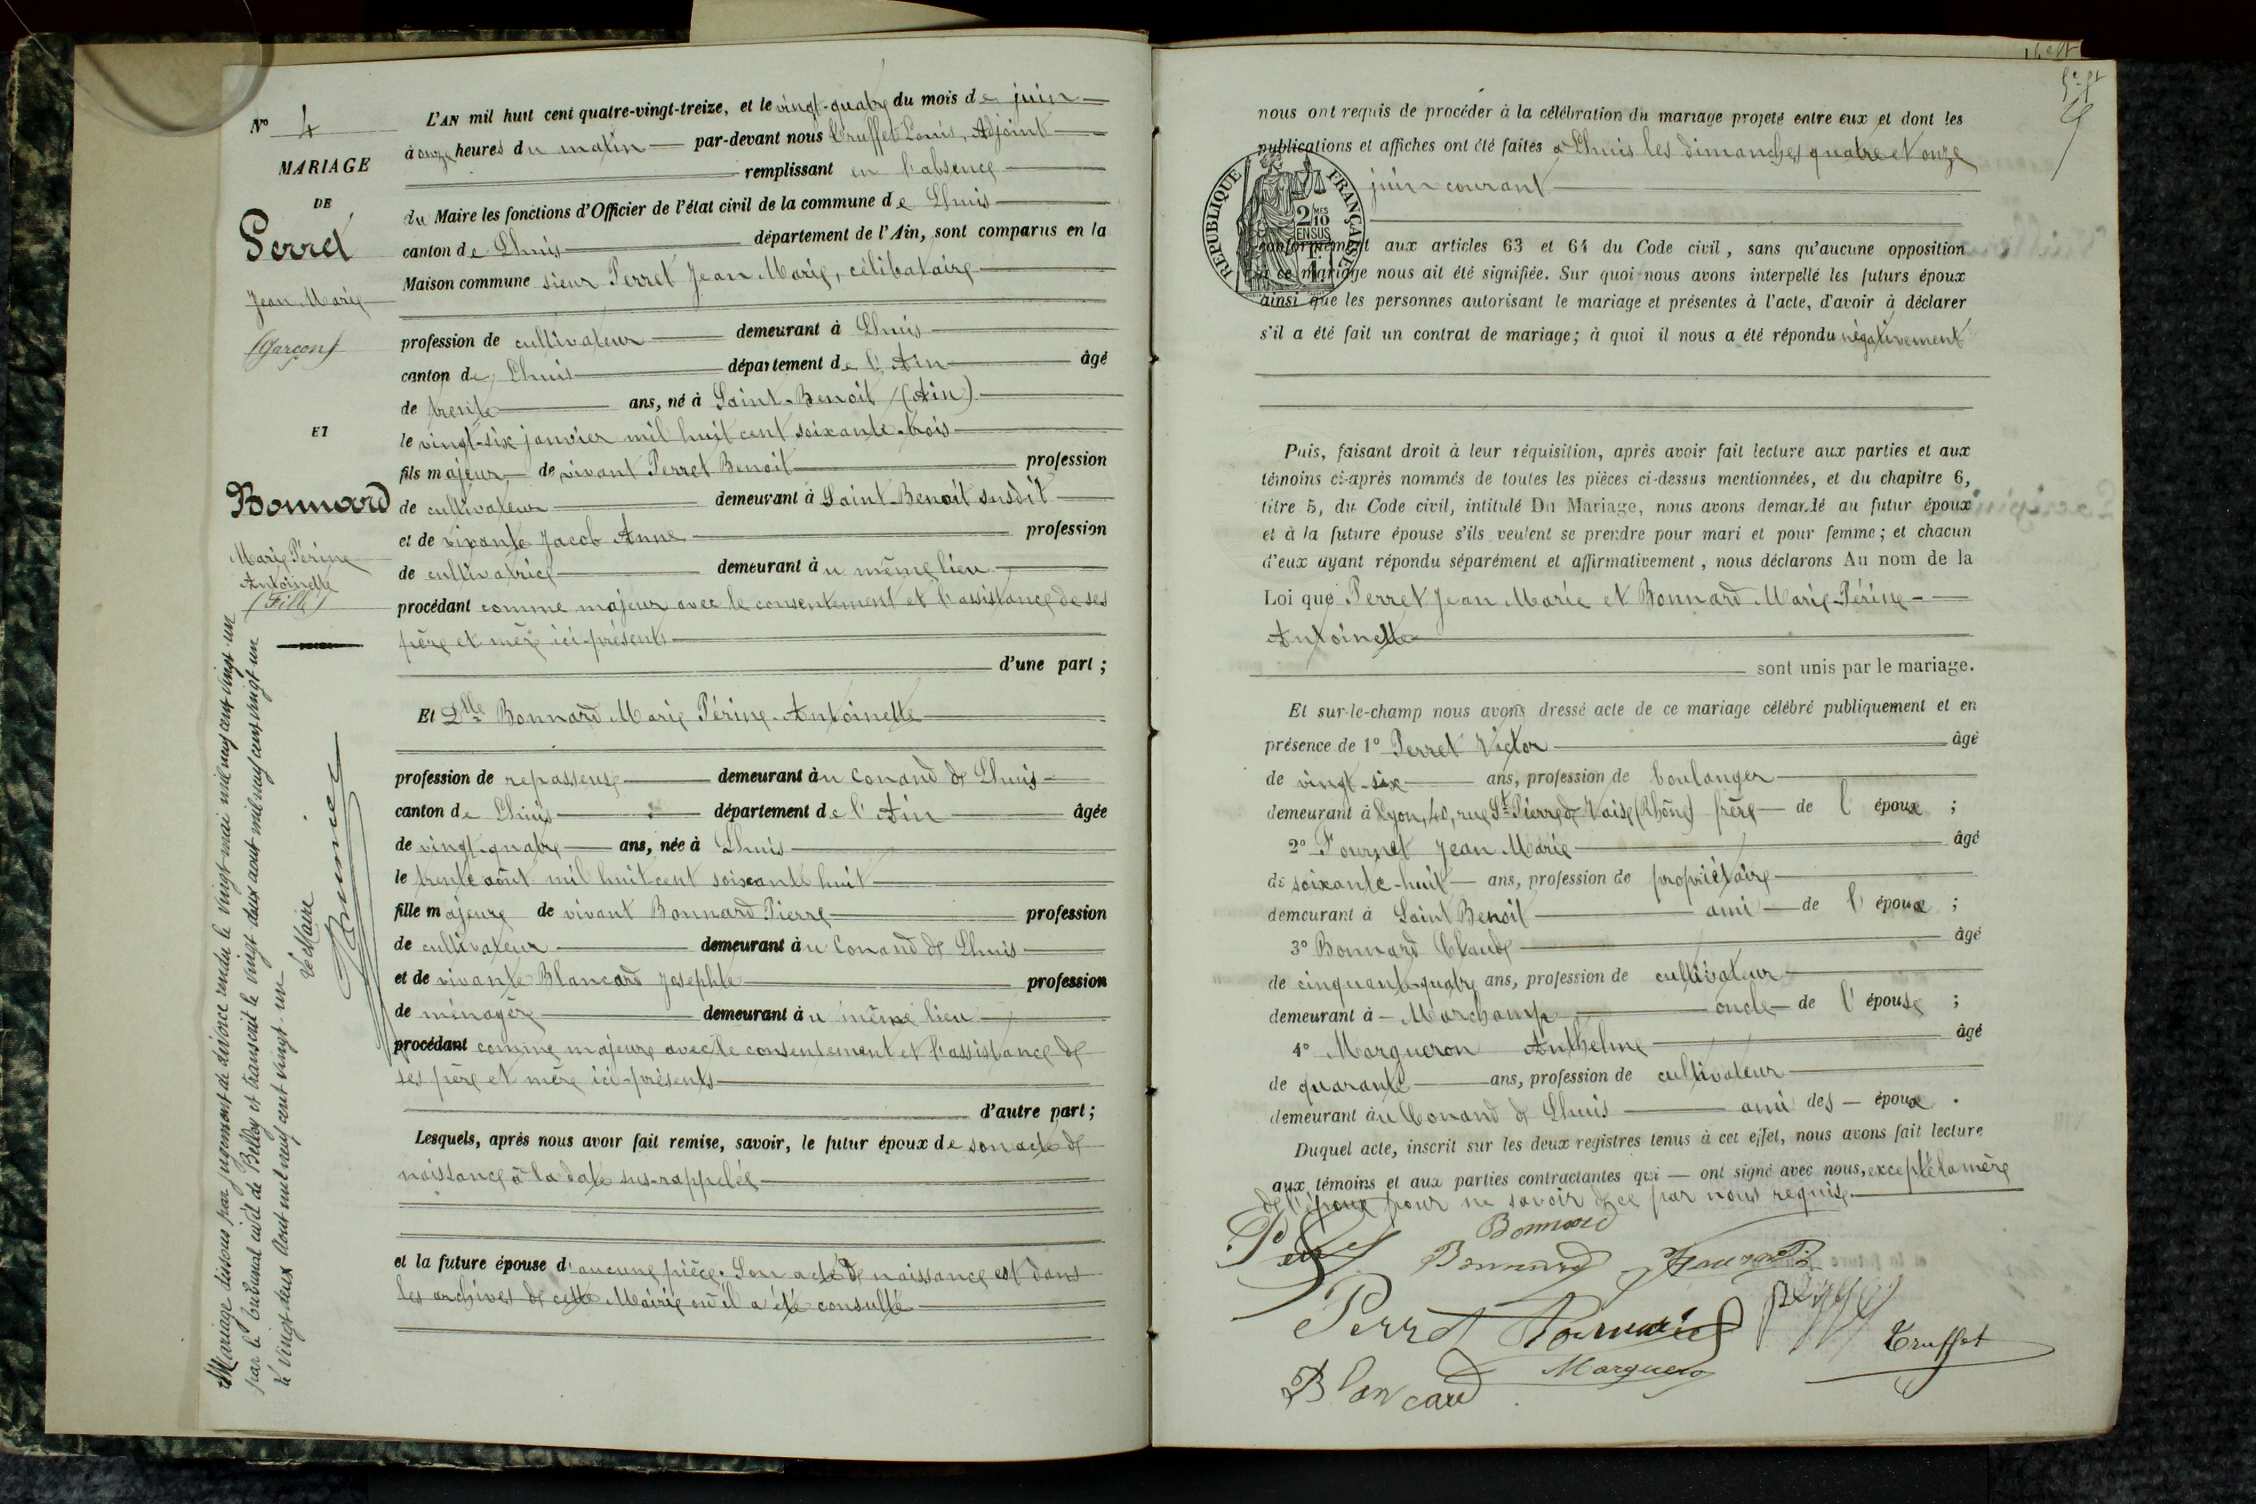 N° 4
MARIAGE
DE
Perret
Jean Marie
(Garçon)
ET
Bonnard
Marie Périne
Antoinette
(Fille)
Mariage dissous par jugement de divorce rendu le vingt mai mil neuf cent vingt-un
par le tribunal civil de Belley et transcrit le vingt deux aout mil neuf cent vingt un
le vingt-deux Aout mil neuf cent vingt-un
Le Maire
L'AN mil huit cent quatre-vingt-treize, et le vingt-quatre du mois de juin
à onze heures du matin par-devant nous Truffet Louis, Adjoint
remplissant en l'absence
du Maire les fonctions d'Officier de l'état civil de la commune de Lhuis
canton de Lhuis département de l'Ain, sont comparus en la
Maison commune sieur Perret Jean Marie, célibataire
profession de cultivateur demeurant à Lhuis
canton de Lhuis département de l'Ain âgé
de trente ans, né à Saint-Benoit (Ain)
le vingt-six janvier mil huit cent soixante-trois
fils majeur de vivant Perret Benoit profession
de cultivateur demeurant à Saint-Benoit susdit
et de vivante Jacob Anne profession
de cultivatrice demeurant au même lieu
procédant comme majeur avec le consentement et l'assistance de ses
père et mère ici-présents
d'une part ;
Et Dlle Bonnard Marie Périne-Antoinette
profession de repasseuse demeurant au Conand de Lhuis
canton de Lhuis département de l'Ain âgée
de vingt-quatre ans, née à Lhuis
le trente août mil huit cent soixante huit
fille majeure de vivant Bonnard Pierre profession
de cultivateur demeurant au Conand de Lhuis
et de vivante Blancard Josephte profession
de ménagère demeurant au même lieu
procédant comme majeure avec le consentement et l'assistance de
ses père et mère ici-présents
d'autre part ;
Lesquels, après nous avoir fait remise, savoir, le futur époux de son acte de
naissance à la date sus-rappelée
et la future épouse d'aucune pièce. Son acte de naissance est dans
les archives de cette Mairie où il a été consulté
nous ont requis de procéder à la célébration du mariage projeté entre eux et dont les
publications et affiches ont été faites à Lhuis les dimanches quatre et onze
juin courant
RÉPUBLIQUE FRANÇAISE
2/10 MES
EN SUS
F. 1
conformément aux articles 63 et 64 du Code civil, sans qu'aucune opposition
à ce mariage nous ait été signifiée. Sur quoi nous avons interpellé les futurs époux
ainsi que les personnes autorisant le mariage et présentes à l'acte, d'avoir à déclarer
s'il a été fait un contrat de mariage ; à quoi il nous a été répondu négativement
Puis, faisant droit à leur réquisition, après avoir fait lecture aux parties et aux
témoins ci-après nommés de toutes les pièces ci-dessus mentionnées, et du chapitre 6,
titre 5, du Code civil, intitulé Du Mariage, nous avons demandé au futur époux
et à la future épouse s'ils veulent se prendre pour mari et pour femme ; et chacun
d'eux ayant répondu séparément et affirmativement, nous déclarons Au nom de la
Loi que Perret Jean Marie et Bonnard Marie-Périne-
Antoinette
sont unis par le mariage.
Et sur-le-champ nous avons dressé acte de ce mariage célébré publiquement et en
présence de 1° Perret Victor âgé
de vingt-six ans, profession de boulanger
demeurant à Lyon, 40, rue St Pierre de Vaise (Rhône) frère de l'époux ;
2° Fournet Jean Marie âgé
de soixante-huit ans, profession de propriétaire
demeurant à Saint Benoit ami de l'époux ;
3° Bonnard Claude âgé
de cinquante-quatre ans, profession de cultivateur
demeurant à Marchamp oncle de l'épouse ;
4° Margueron Anthelme âgé
de quarante ans, profession de cultivateur
demeurant au Conand de Lhuis ami des époux.
Duquel acte, inscrit sur les deux registres tenus à cet effet, nous avons fait lecture
aux témoins et aux parties contractantes qui ont signé avec nous, excepté la mère
de l'époux pour ne savoir de ce par nous requise.
Perret
Bonnard
Bonnard
Perret
Margueron
Truffet
Blancard